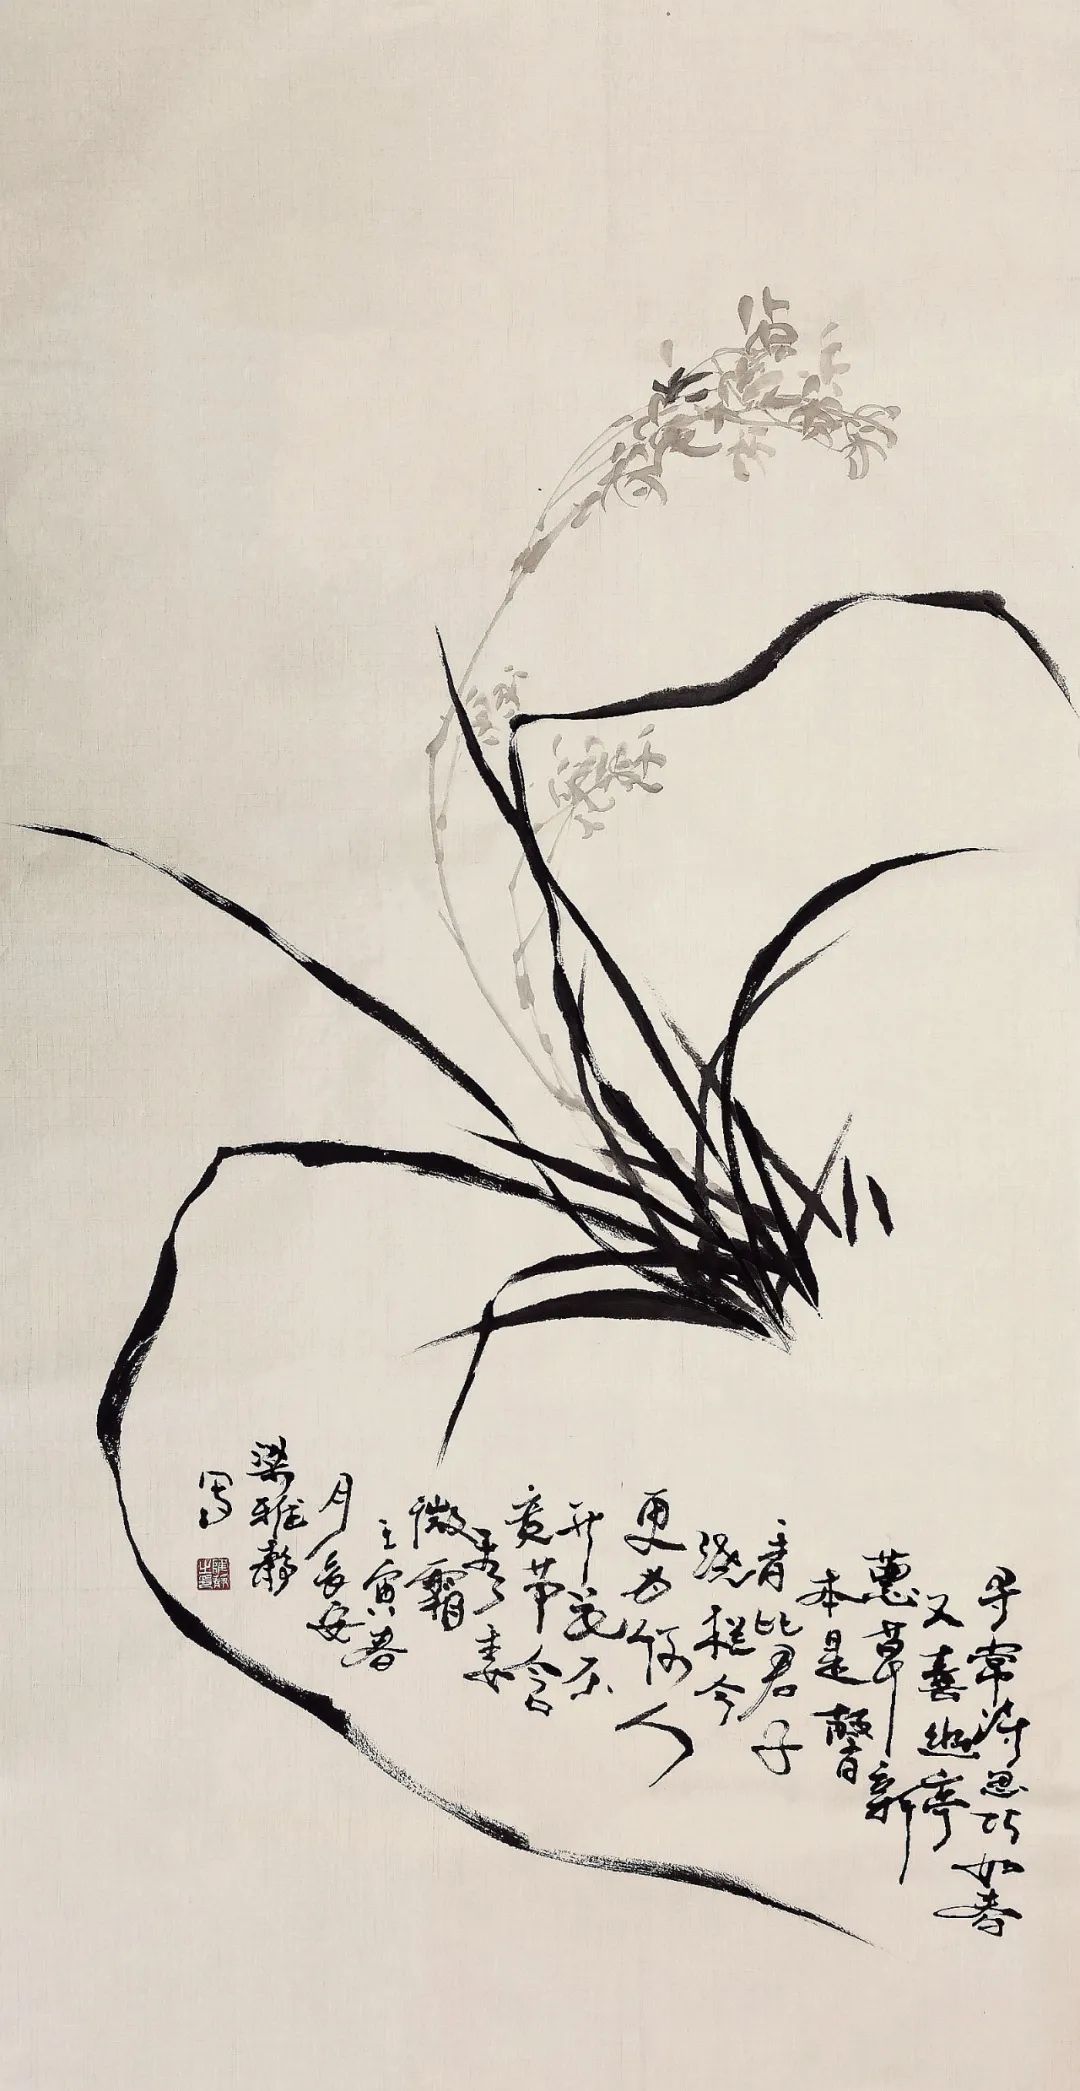 寻常诗思巧如春
又喜幽亭
蕙草新
本是馨
香比君子
绕栏今
更为何人
开花不
竞节含
秀委
微霜
壬寅春
月长安
梁雅静
写